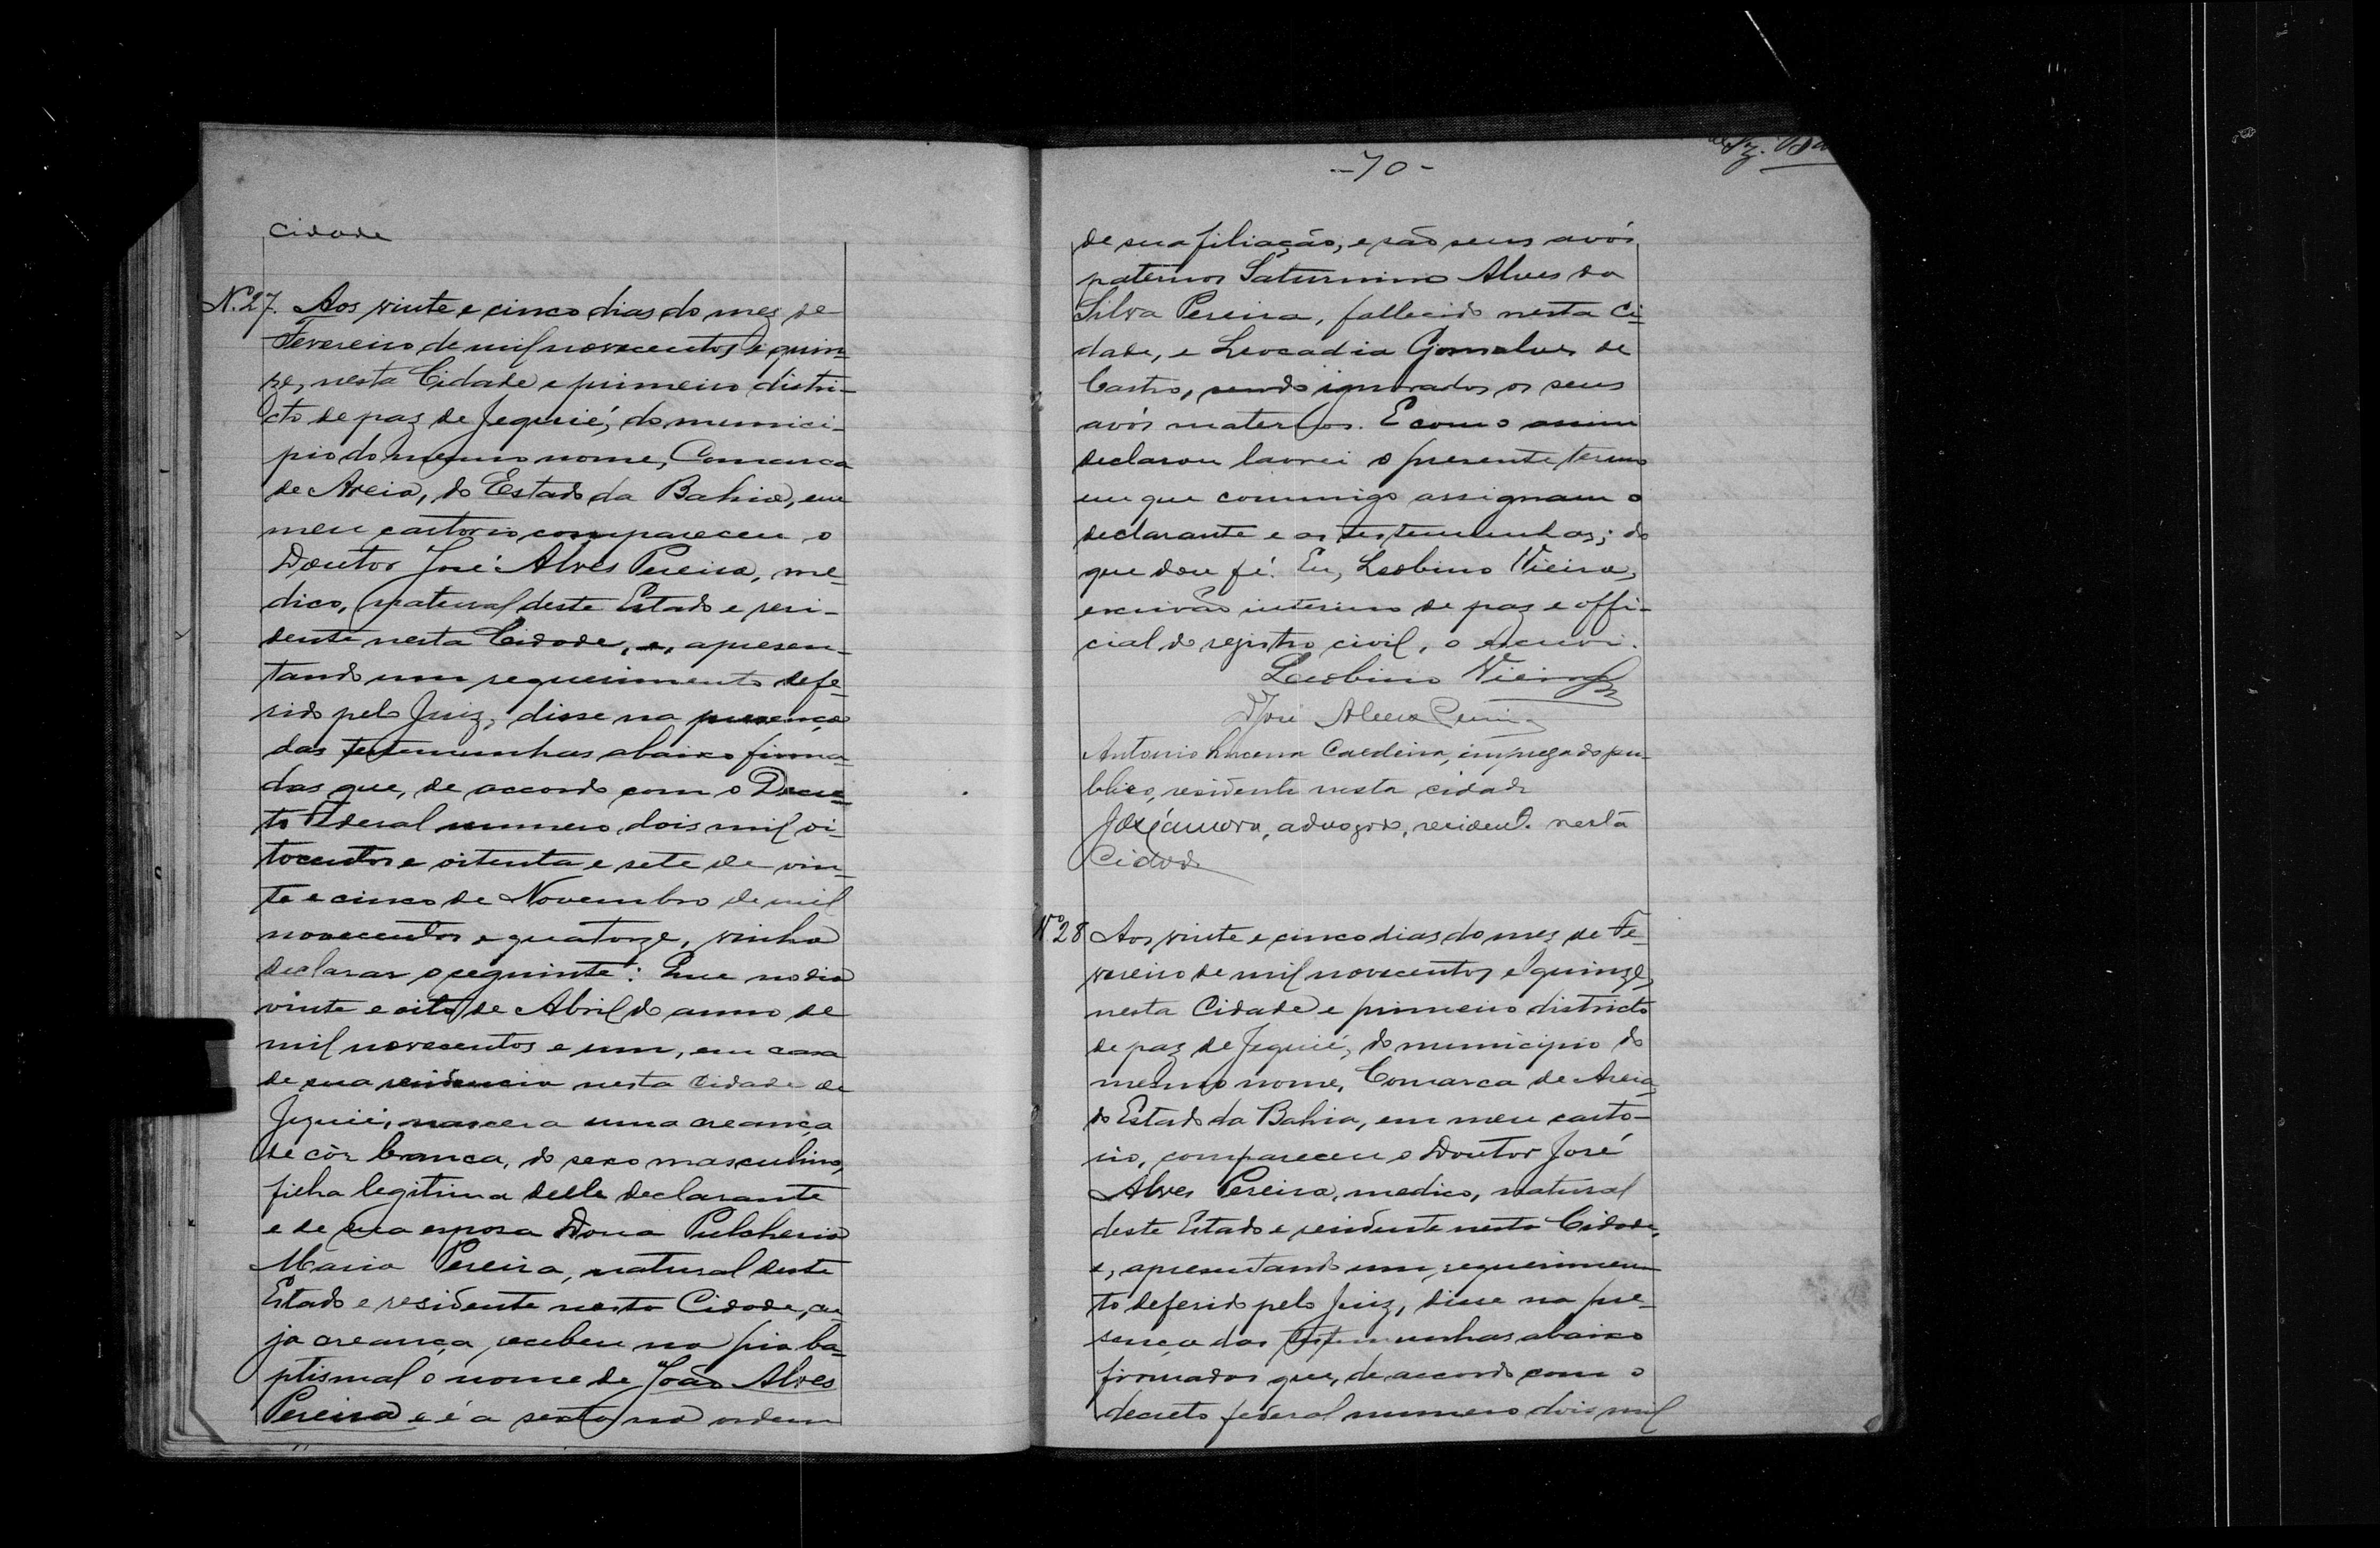 cidade
N. 27. Aos vinte e cinco dias do mez de
Fevereiro de mil novecentos e quin-
ze, nesta Cidade e primeiro distri-
cto de paz de Jequié, do munici-
pio do mesmo nome, Comarca
de Areia, do Estado da Bahia, em
meu cartorio compareceu o
Doutor José Alves Pereira, me-
dico, natural deste Estado e resi-
dente nesta Cidade, e, apresen-
tando um requerimento defe-
rido pelo Juiz, disse na presença
das testemunhas abaixo firma-
das que, de accordo com o Decre-
to Federal numero dois mil oi-
tocentos e oitenta e sete de vin-
te e cinco de Novembro de mil
novecentos e quatorze, vinha
declarar o seguinte: Que no dia
vinte e oito de Abril do anno de
mil novecentos e um, em casa
de sua residencia nesta Cidade de
Jequié, nascera uma creança
de côr branca, do sexo masculino,
filha legitima delle declarante
e de sua esposa Dona Pulcheria
Maria Pereira, natural deste
Estado e residente nesta Cidade, cu-
ja creança recebeu na pia ba-
ptismal o nome de João Alves
Pereira e é a sexta na ordem
-70-
de sua filiação, e são seus avós
paternos Saturnino Alves da
Silva Pereira, fallecido nesta Ci-
dade, e Leocadia Gonsalves de
Castro, sendo ignorados os seus
avós maternos. E como assim
declarou lavrei o presente termo
em que commigo assignam o
declarante e as testemunhas; do
que dou fé. Eu, Leobino Vieira,
escrivão interino de paz e offi-
cial do registro civil, o escrevi.
Leobino Vieira
José Alves Pereira
Antonio Lucena Caldeira, empregado pu-
blico, residente nesta cidade
advogado, resident. nesta
Cidade
Nº 28 Aos vinte e cinco dias do mez de Fe-
vereiro de mil novecentos e quinze,
nesta Cidade e primeiro districto
de paz de Jequié, do municipio do
mesmo nome, Comarca de Areia,
do Estado da Bahia, em meu carto-
rio, compareceu o Doutor José
Alves Pereira, medico, natural
deste Estado e residente nesta Cidade,
e, apresentando um requerimen-
to deferido pelo Juiz, disse na pre-
sença das testemunhas abaixo
firmadas que, de accordo com o
decreto federal numero dois mil